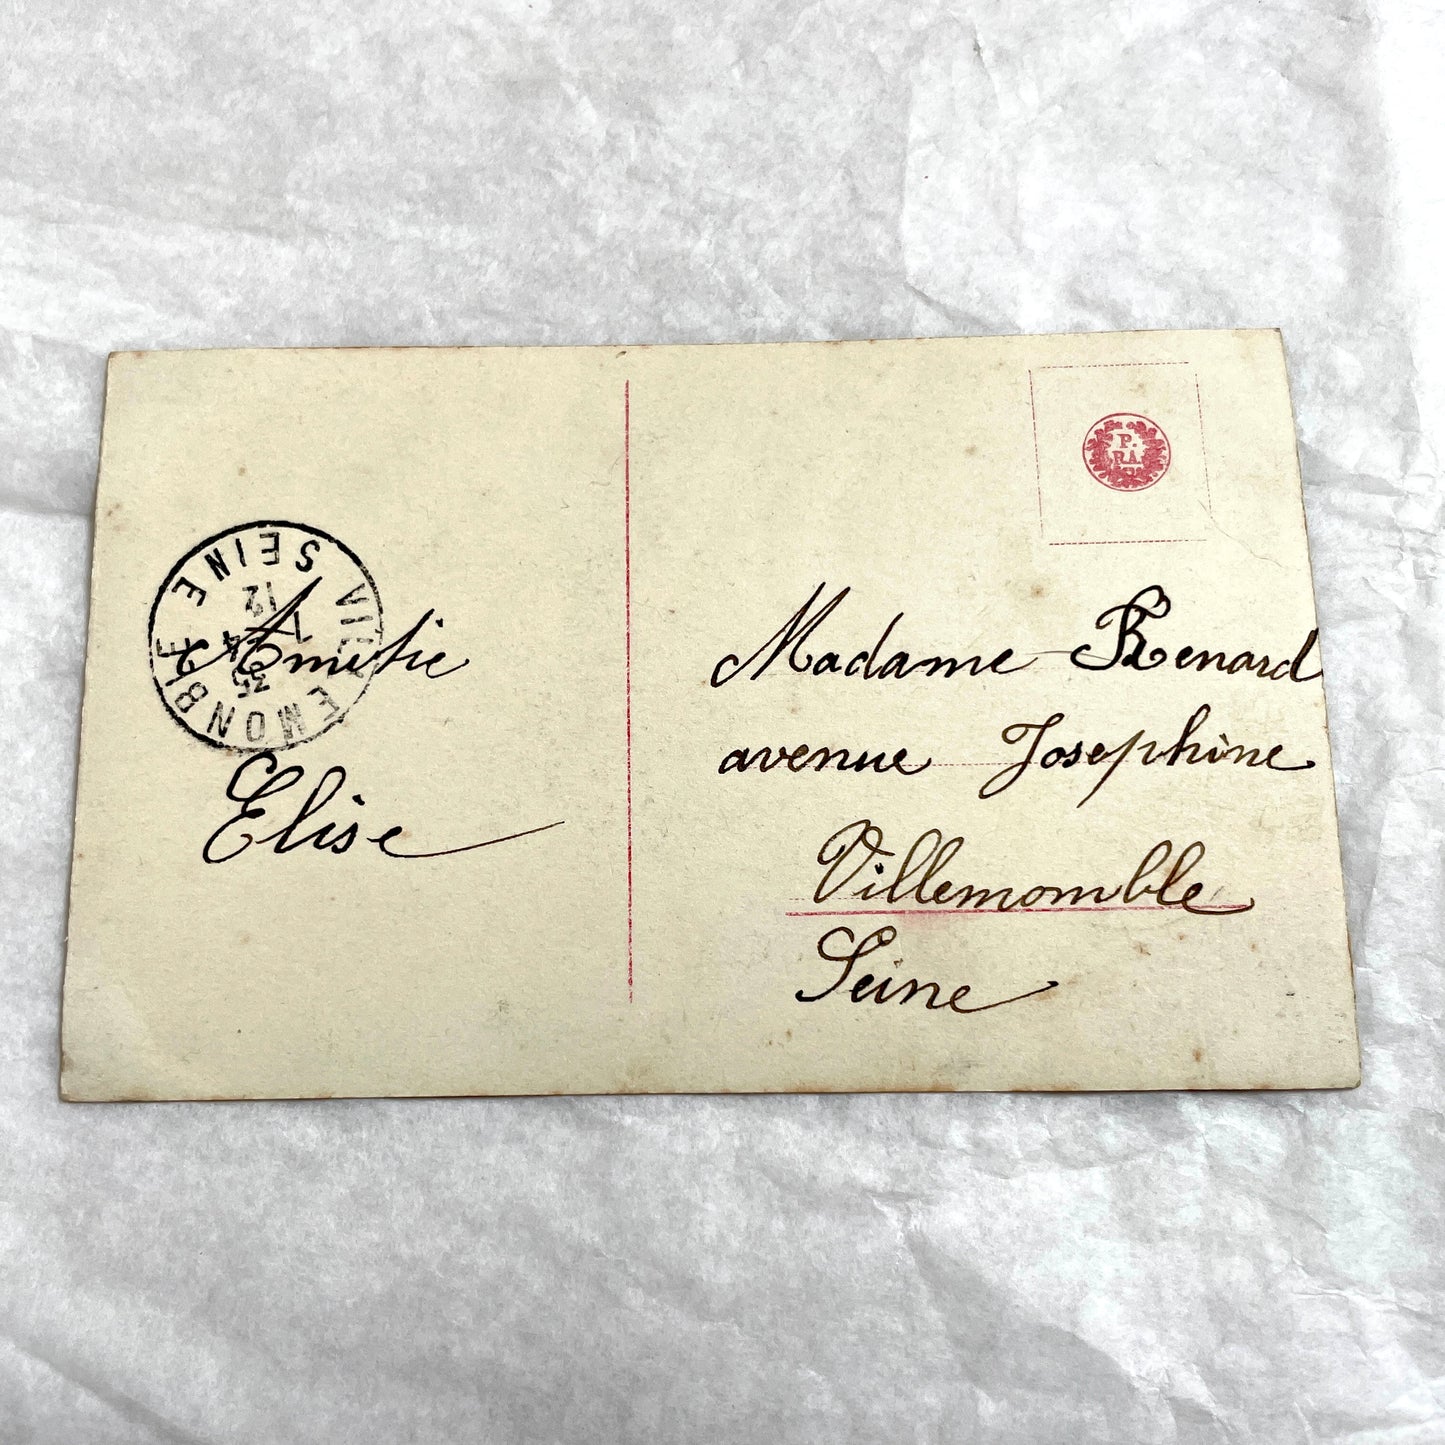 VILLEMONBLE
SEINE
12
Amitié
Elise
P.
RA.
Madame Renard
avenue Josephine
Villemomble
Seine